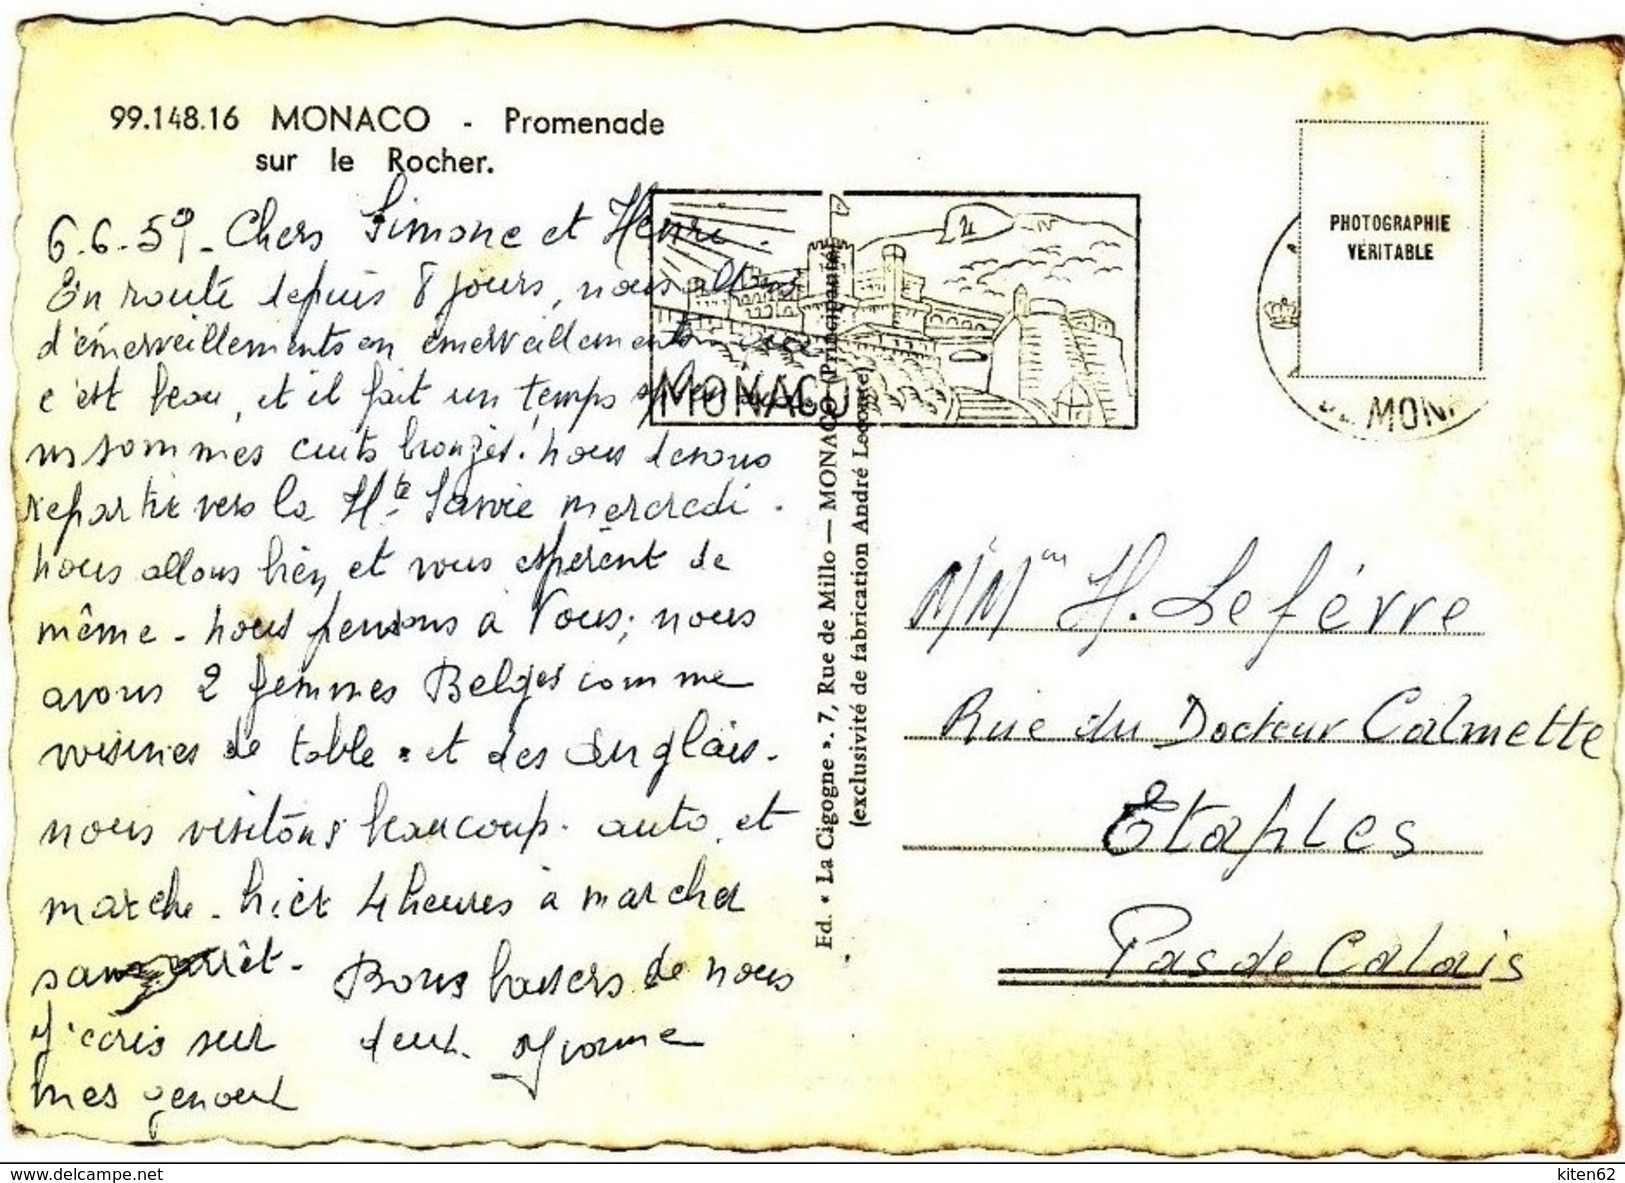 99.148.16 MONACO - Promenade
sur le Rocher.
6.6.59 - Chers Simone et Henri.
En route depuis 8 jours, nous allons
d'émerveillements en émerveillements
c'est beau, et il fait un temps
ns sommes cuits bronzés. nous devons
repartir vers la Hte Savoie mercredi.
nous allons bien, et vous espèrent de
même - nous pensons à Vous; nous
avons 2 femmes Belges comme
voisines de table. et des Anglais.
nous visitons beaucoup. auto. et
marche. hier 4 heures à marcher
sans arrêt. Bons baisers de nous
J'écris sur deux. Yvonne
mes genoux
MONACO
PHOTOGRAPHIE
VÉRITABLE
MON
Ed. « La Cigogne ». 7, Rue de Millo — MONACO (Principauté)
(exclusivité de fabrication André Leconte)
H. Lefévre
Rue du Docteur Calmette
Etaples
Pas de Calais
www.delcampe.net
kiten62